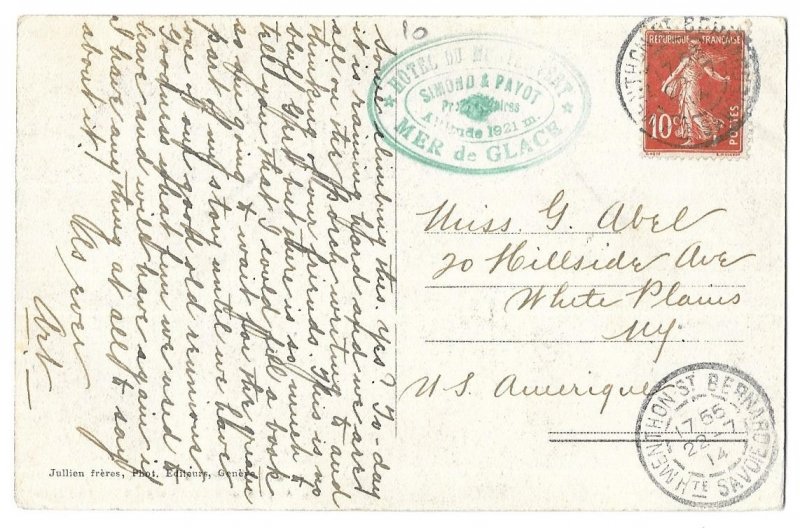 Now climbing this. yes? To-day
it is raining hard and we are
all on the porch writing to and
thinking of our friends. This is no
bluff Gret but there is so much to
tell you that I could fill a book
so am going to wait for the great
part of my story until we have
one of our good old reunions
Goodness that fun we used to
have and will have again if
I have anything at all to say
about it!
As ever
Art
10
HÔTEL DU MONTENVERT
SIMOND & PAYOT
Propriétaires
Altitude 1921 m.
MER de GLACE
REPUBLIQUE FRANÇAISE
10c
POSTES
Miss. G. Abel
20 Hillside Ave
White Plains
NY.
U.S. Amerique
MENTHON ST BERNARD
17 55
22 -7
14
HTE SAVOIE
Jullien frères, Phot. Editeurs, Genève